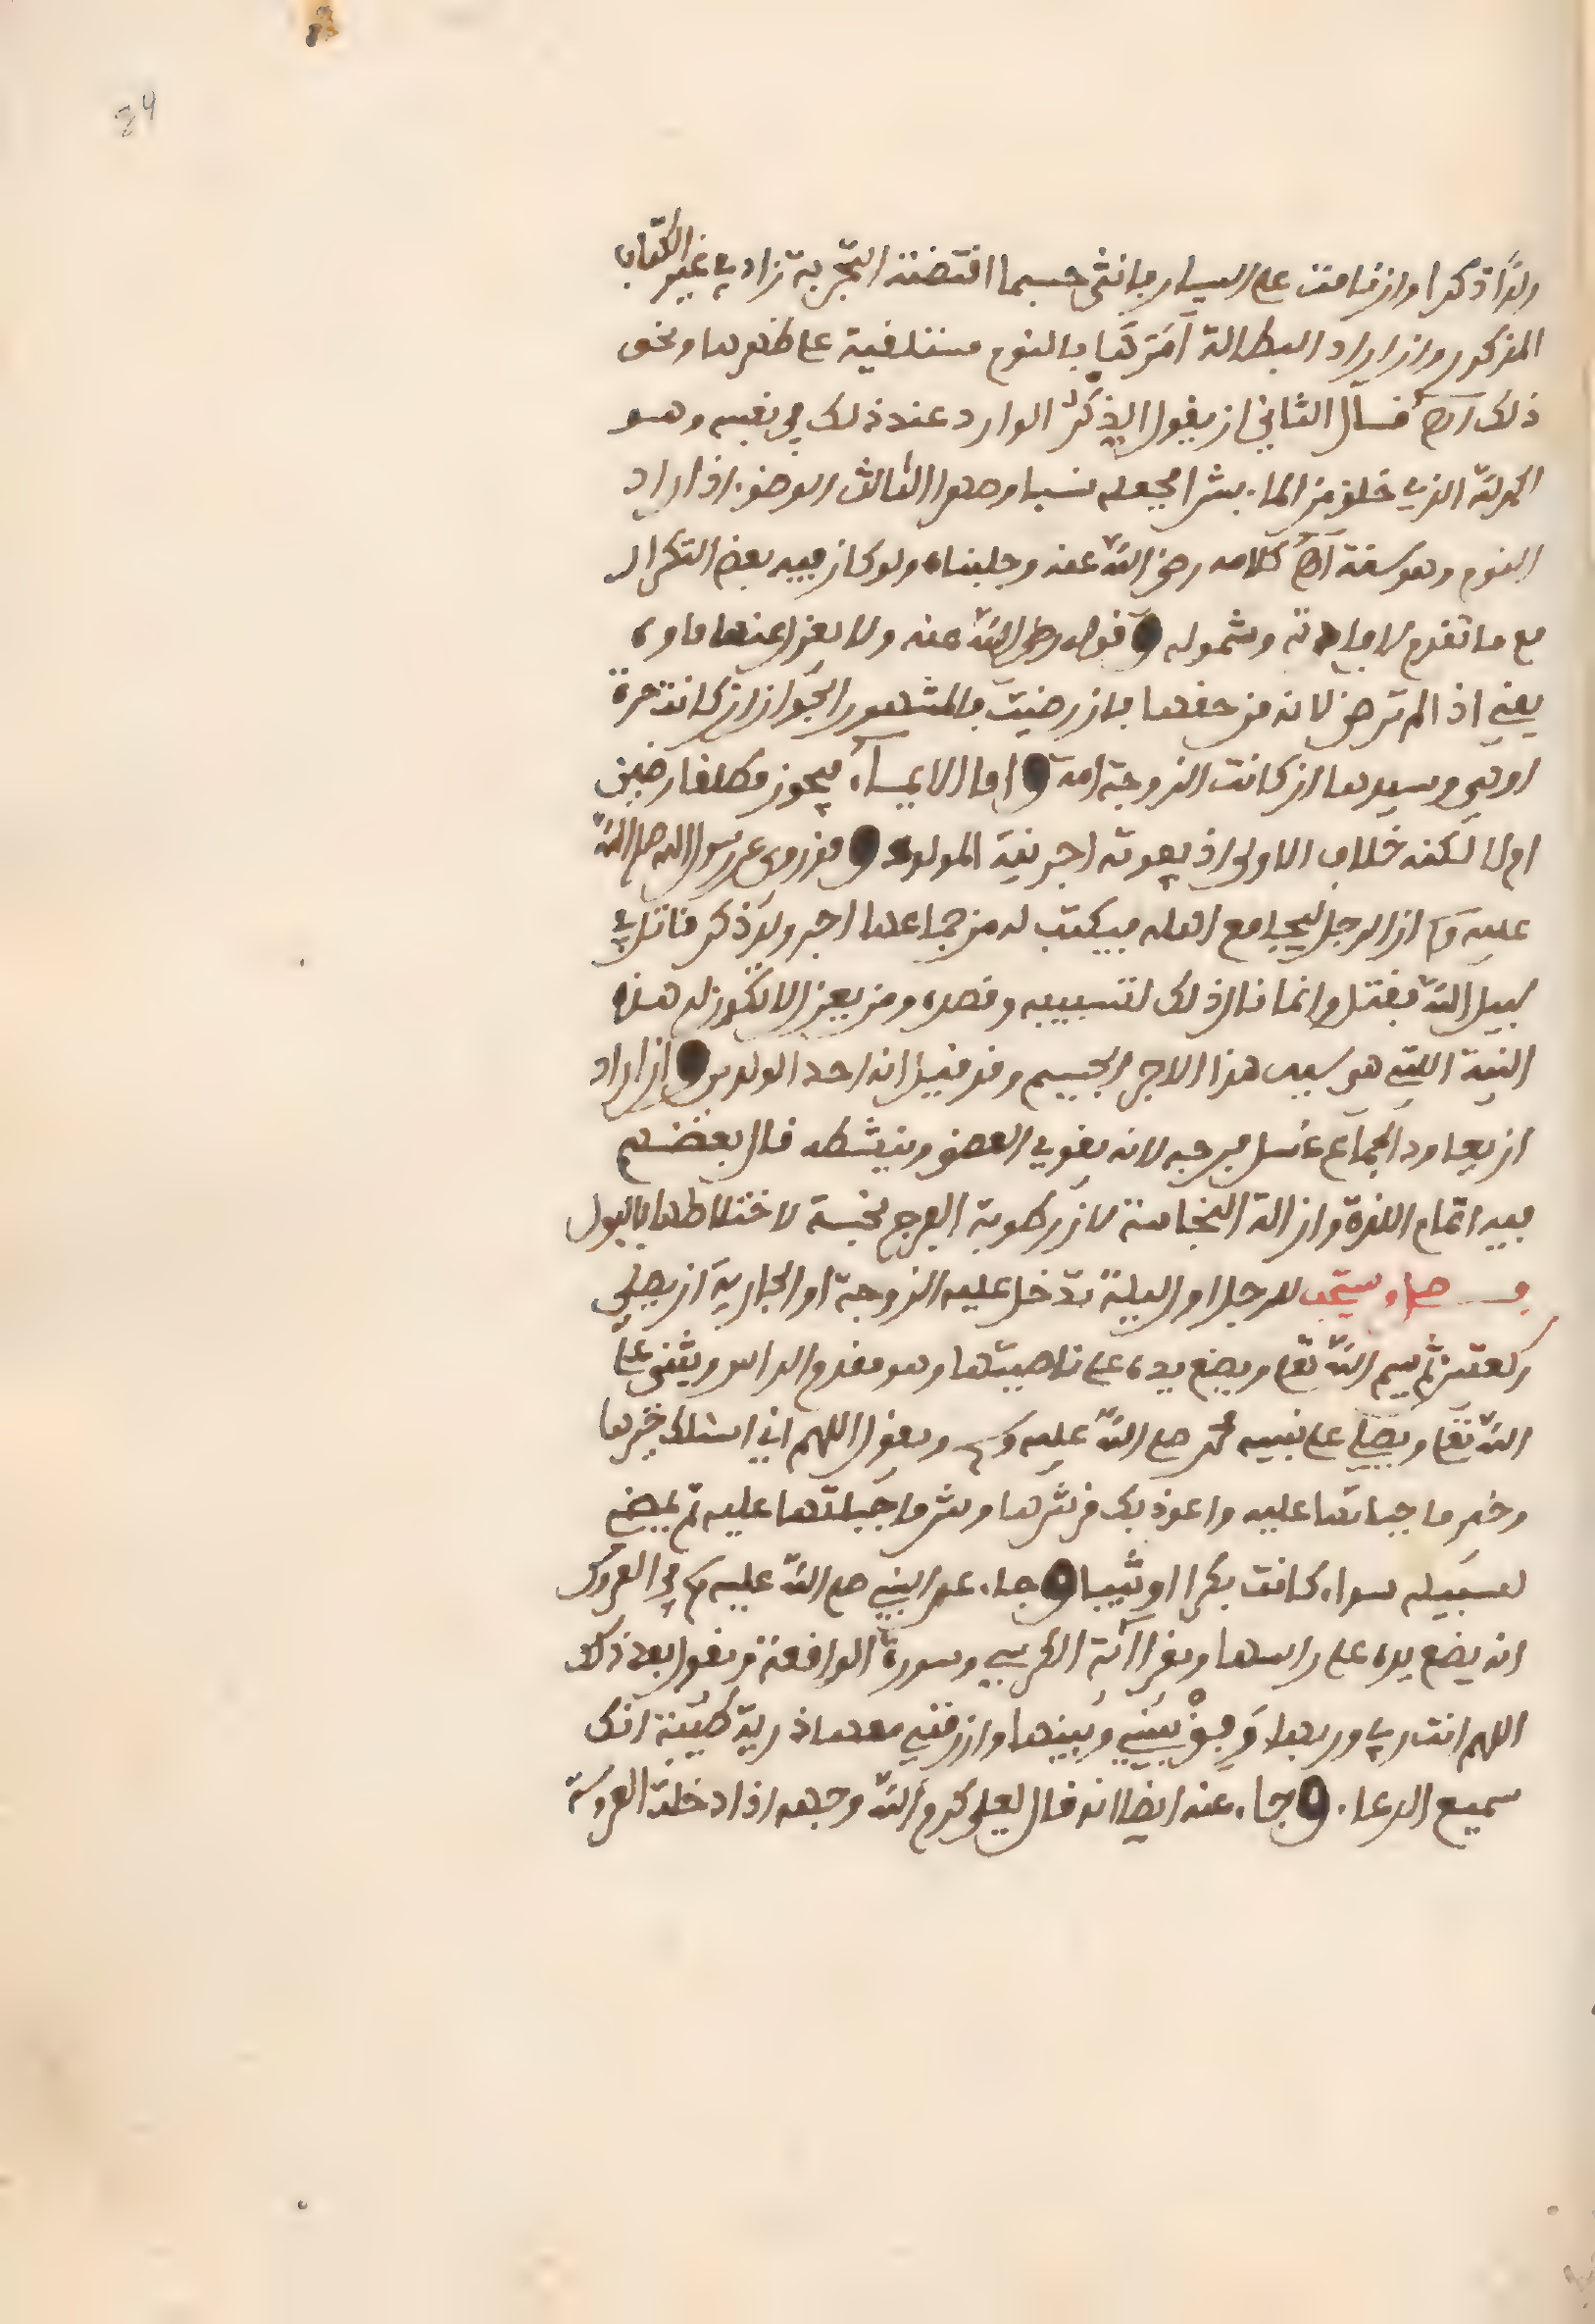 84
ولدًا ذكرا وان نامت على اليسار فانثى حسبما اقتضته التجربة زاد في غير الكتاب
المذكور وان اراد البطالة أمرها بالنوم مستلقية على ظهرها ونحو
ذلك اه قال الثاني ان يقول الذكر الوارد عند ذلك في نفسه وهو
الحمد لله الذي خلق من الماء بشرا فجعله نسبا وصهرا الثالث الوضوء اذا اراد
النوم وهو سنة اه كلامه رضي الله عنه وجلبناه ولو كان فيه بعض التكرار
مع ما تقدم لافادته وشموله وقوله رضي الله عنه ولا يعزل عنها ماءه
يعني اذا لم ترض لانه من حقها فان رضيت فالمشهور الجواز ان كانت حرة
او هي وسيدها ان كانت الزوجة امة واما الاماء فيجوز مطلقا رضين
ام لا لكنه خلاف الاولى اذ يفوته اجر نية المولود فقد روي عن رسول الله صلى الله
عليه وسلم ان الرجل ليجامع اهله فيكتب له من جماعها اجر ولد ذكر قاتل في
سبيل الله فقتل وانما قال ذلك لتسببه وقصده ومن يعزل لا تكون له هذه
النية التي هي سبب هذا الاجر الجسيم وقد قيل انه احد الولدين وان اراد
ان يعاود الجماع غسل فرجه لانه يقوي العضو وينشطه قال بعضهم
فيه اتمام اللذة وازالة النجاسة لان رطوبة الفرج نجسة لاختلاطها بالبول
فصل ويستحب للرجل اول ليلة تدخل عليه الزوجة او الجارية ان يصلي
ركعتين ثم يسم الله تعالى ويضع يده على ناصيتها وهو مقدم الراس ويثني على
الله تعالى ويصلي على نبيه محمد صلى الله عليه وسلم ويقول اللهم اني اسئلك خيرها
وخير ما جبلتها عليه واعوذ بك من شرها وشر ما جبلتها عليه ثم يمضي
لسبيله سواء كانت بكرا او ثيبا وجاء عن النبي صلى الله عليه وسلم في العروس
انه يضع يده على راسها ويقرا آية الكرسي وسورة الواقعة ويقول بعد ذلك
اللهم انت ربي وربها وفق بيني وبينها وارزقني معها ذرية طيبة انك
سميع الدعاء وجاء عنه ايضا انه قال لعلي كرم الله وجهه اذا دخلت العروسة